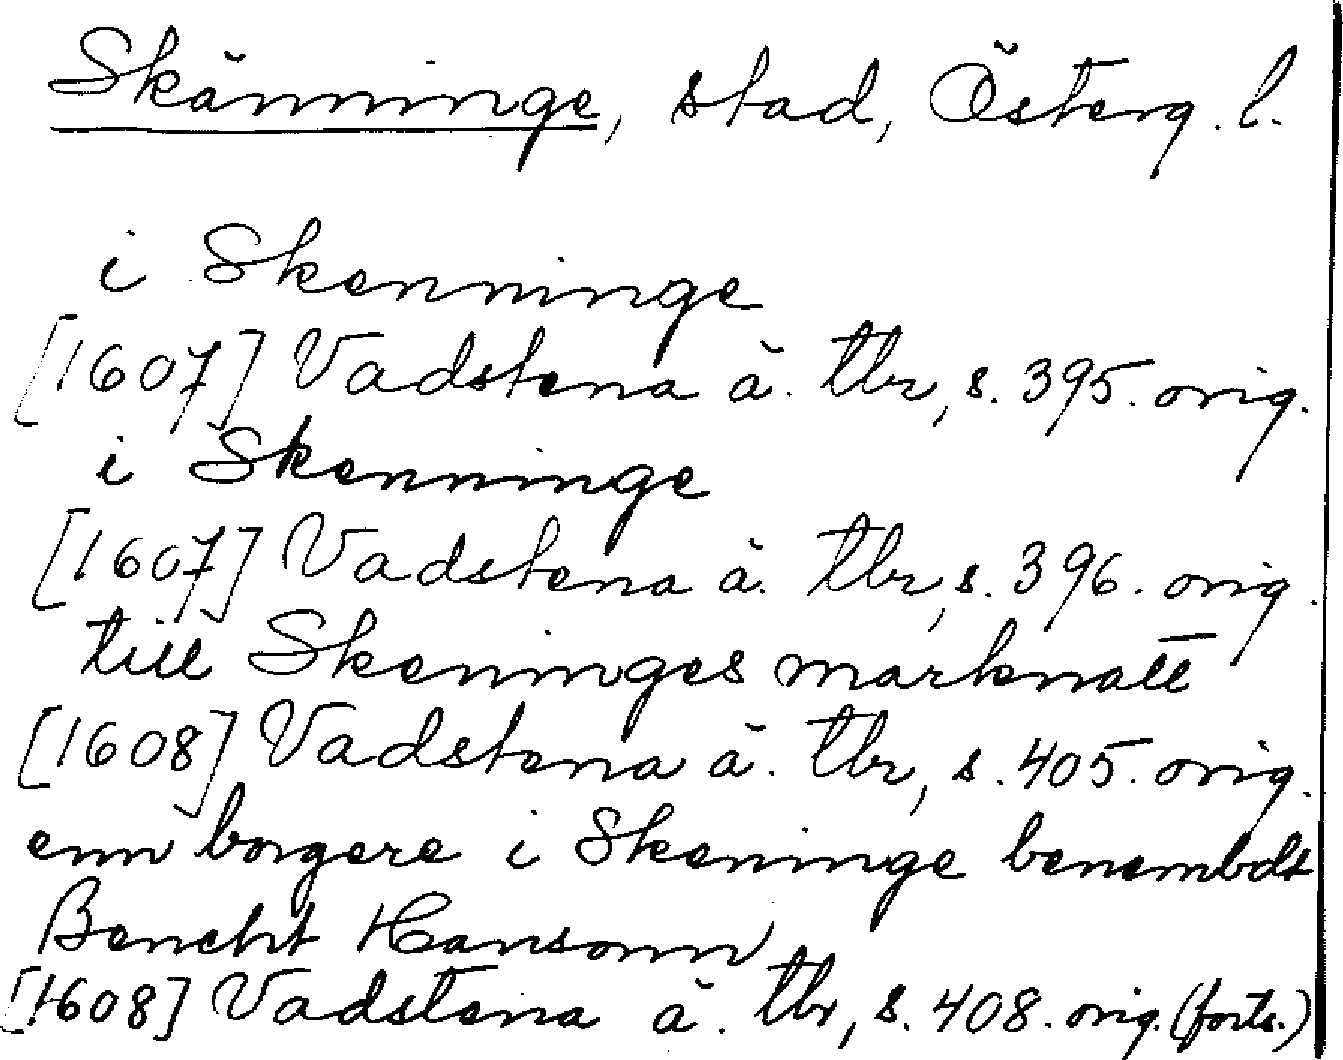 Skänninge, stad, Österg. l.
i Skenninge
[1607] Vadstena ä. tbr, s. 395. orig.
i Skenninge
[1607] Vadstena ä. tbr, s. 396. orig.
till Skeninges marknatt
[1608] Vadstena ä. tbr, s. 405. orig.
enn borgere i Skeninge benembdt
Bencht Hansonn
[1608] Vadstena ä. tbr, s. 408. orig. (forts.)